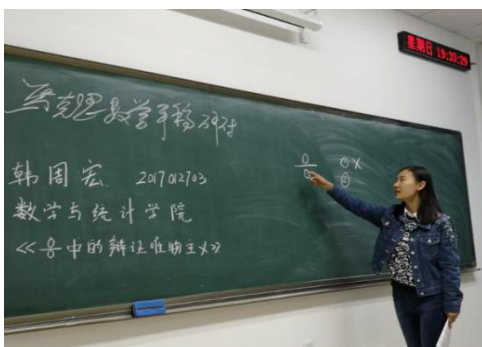 星期日 19:33:29
马克思数学手稿研讨
韩周宏 2017012703
数学与统计学院
《0/0中的辩证唯物主义》
0/0
① ×
②